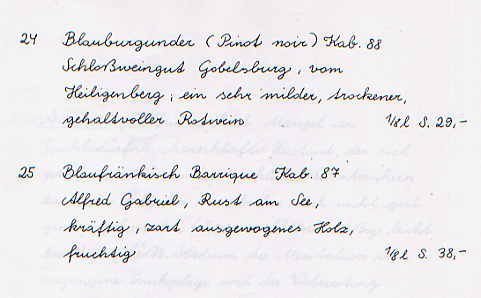 24 Blauburgunder (Pinot noir) Kab. 88
Schloßweingut Gobelsburg, vom
Heiligenberg, ein sehr milder, trockener,
gehaltvoller Rotwein 1/8 l S. 29,-
25 Blaufränkisch Barrique Kab. 87
Alfred Gabriel, Rust am See,
kräftig, zart ausgewogenes Holz,
fruchtig 1/8 l S. 38,-